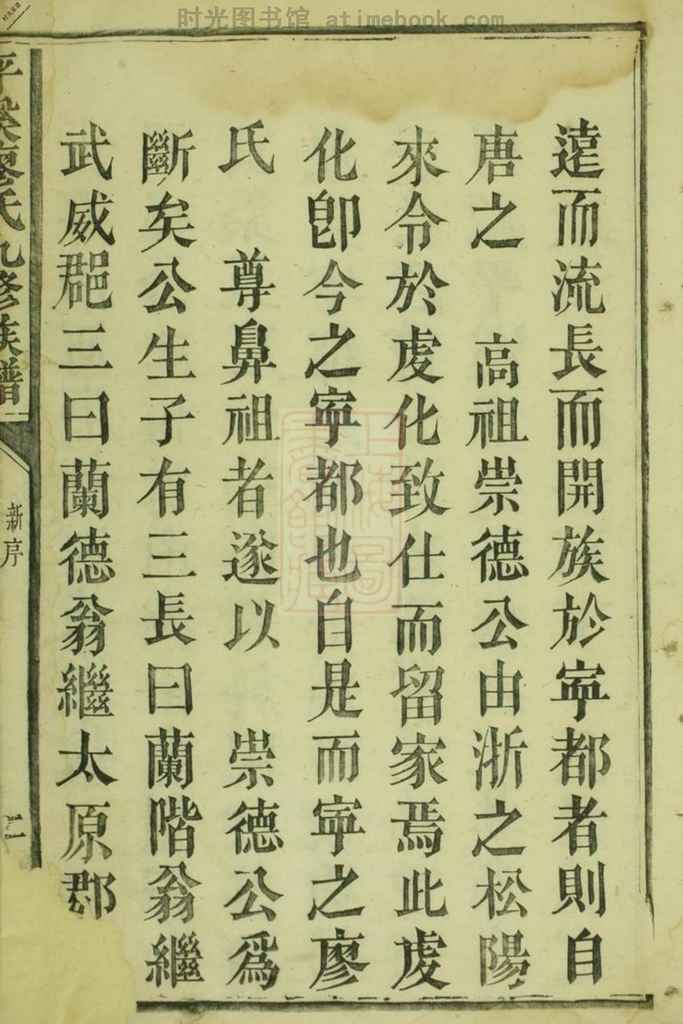 时光图书馆 atimebook.com
遠而流長而開族於寧都者則自
唐之 高祖崇德公由浙之松陽
來令於虔化致仕而留家焉此虔
化卽今之寧都也自是而寧之廖
氏 尊鼻祖者遂以 崇德公爲
斷矣公生子有三長曰蘭階翁繼
武威郡三曰蘭德翁繼太原郡
廖氏九修族譜
新序
二